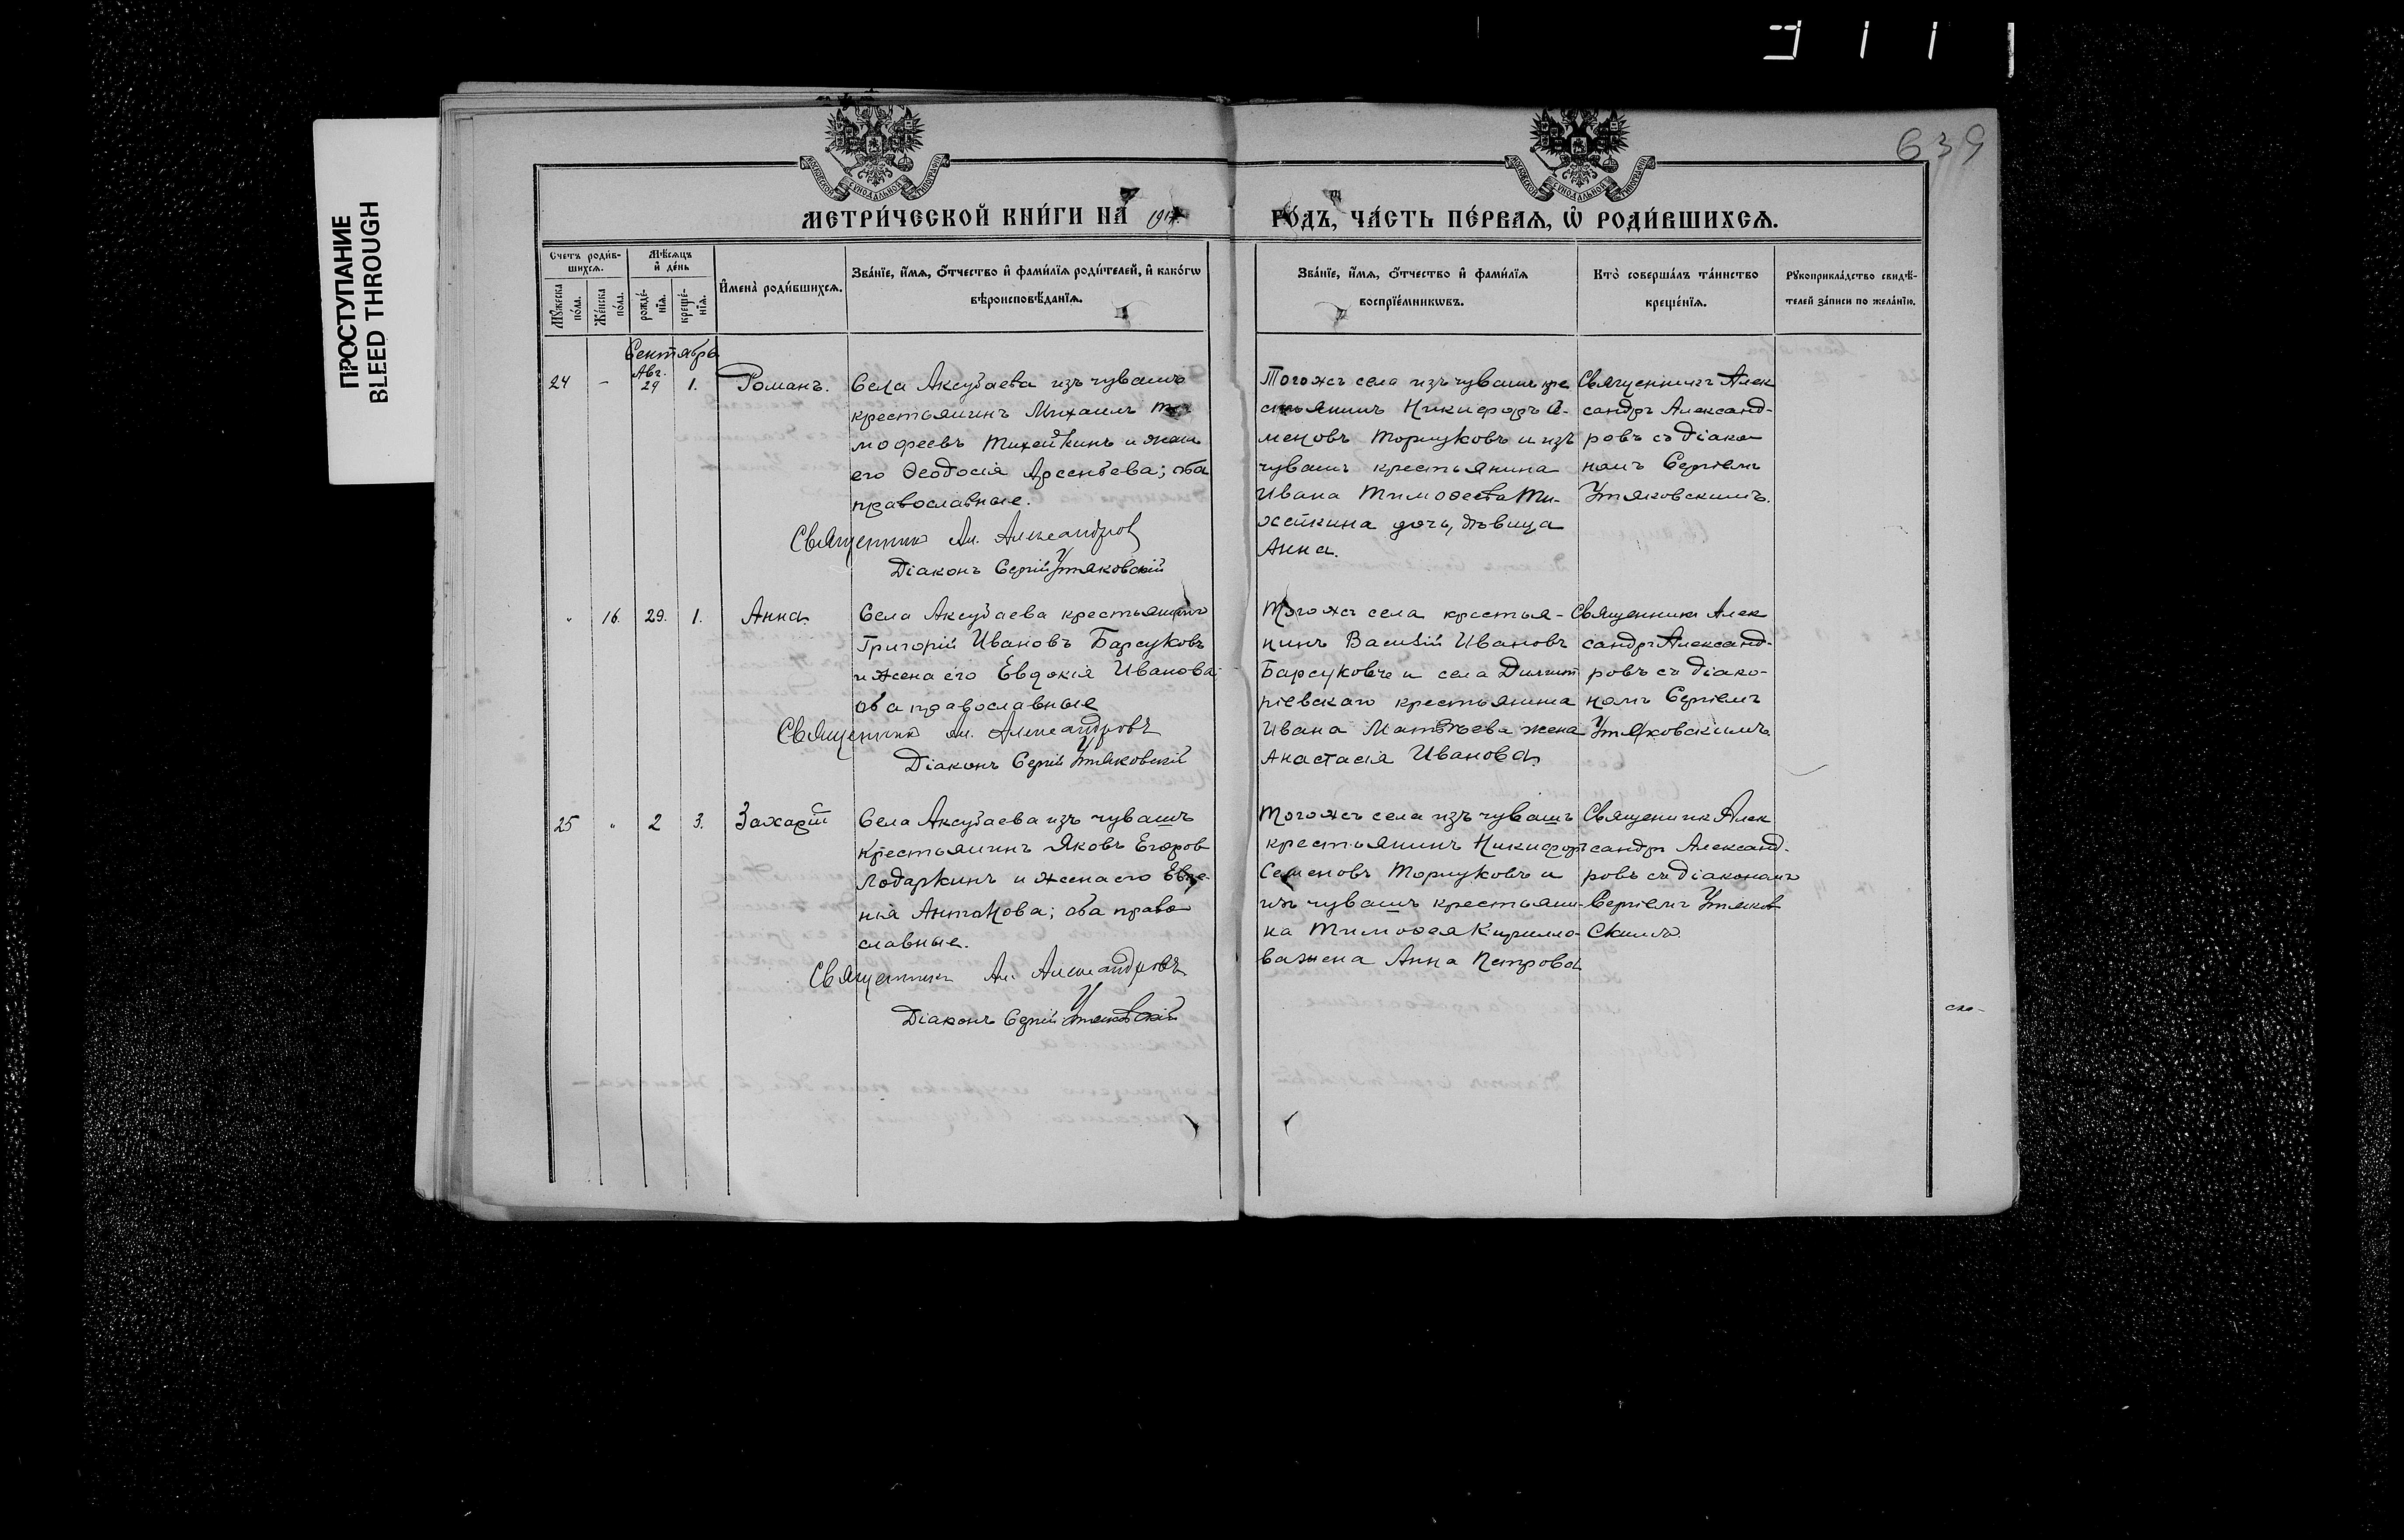 ПРОСТУПАНИЕ
BLEED THROUGH
639
МЕТРИ́ЧЕСКОЙ КНИ́ГИ НА 191
ГО́ДЪ, ЧА́СТЬ ПЕ́РВАЯ, Ѿ РОДИ́ВШИХСЯ.
Счетъ роди́в-
шихся.
Му́жеска по́ла.
Же́нска по́ла.
Мѣ́сяцъ и де́нь
рожде́-нїя.
креще́-нїя.
Имена̀ роди́вшихся.
Зва́нїе, и́мя, о́тчество и фами́лїя роди́телей, и како́гѡ
вѣроисповѣ́данїя.
Зва́нїе, и́мя, о́тчество и фами́лїя
воспрїе́мникѡвъ.
Кто̀ соверша́лъ та́инство
креще́нїя.
Рукоприкла́дство свидѣ́-
телей за́писи по жела́нїю.
Сентябрь
24 - Авг. 29 1. Романъ.
Села Аксубаева изъ чувашъ
крестьянинъ Михаилъ Ти
мофеевъ Тихейкинъ и жена
его Ѳеодосія Арсеньева; оба
православные.
Священникъ Ал. Александров
Діаконъ Сергій Утяковскій
Тогожъ села изъ чувашъ кре
стьянинъ Никифоръ Се-
меновъ Торщуковъ и изъ
чувашъ крестьянина
Ивана Тимоѳеева Ти-
хейкина дочь, дѣвица
Анна.
Священникъ Алек
сандръ Александ-
ровъ съ діако
номъ Сергіемъ
Утяковскимъ.
" 16. 29. 1. Анна.
Села Аксубаева крестьянинъ
Григорій Ивановъ Барсуковъ
и жена его Евдокія Иванова;
оба православные
Священникъ Ал. Александровъ
Діаконъ Сергій Утяковскій
Тогожъ села крестья-
нинъ Василій Ивановъ
Барсуковъ и села Димит
ріевскаго крестьянина
Ивана Матвѣева жена
Анастасія Иванова.
Священникъ Алек
сандръ Александ-
ровъ съ діако-
номъ Сергіемъ
Утяковскимъ.
25 " 2 3. Захарій
Села Аксубаева изъ чувашъ
крестьянинъ Яковъ Егоров
Лодаркинъ и жена его Евге-
нія Антонова; оба право
славные.
Священникъ Ал. Александровъ
Діаконъ Сергій Утяковскій
Тогожъ села изъ чувашъ
крестьянинъ Никифоръ
Семеновъ Торщуковъ и
изъ чувашъ крестьяни-
на Тимоѳея Кирилло-
ва жена Анна Петрова
Священникъ Алек
сандръ Александ-
ровъ съ діакономъ
Сергіемъ Утяков
скимъ.